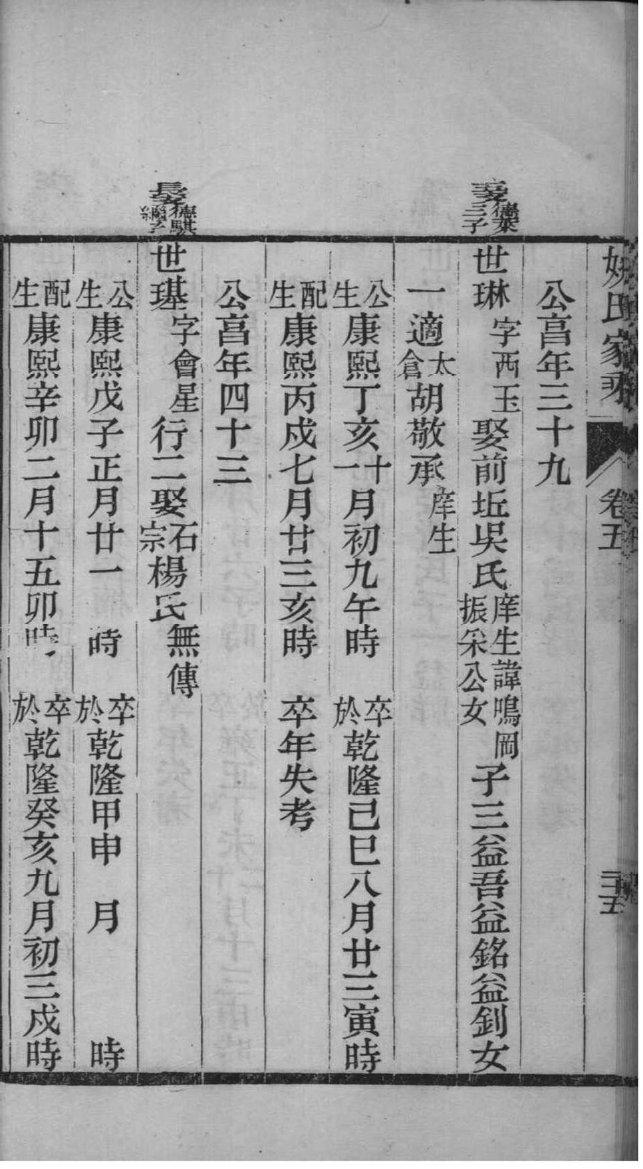 姚氏家乘 卷五 三五
公享年三十九
世琳字西玉娶前坵吳氏庠生諱鳴岡振采公女子三益吾益銘益釗女
一適太倉胡敬承庠生
公生康熙丁亥十一月初九午時 卒於乾隆己巳八月廿三寅時
配生康熙丙戌七月廿三亥時 卒年失考
公享年四十三
世璂字會星行二娶石宗楊氏無傳
公生康熙戊子正月廿一 時 卒於乾隆甲申 月 時
配生康熙辛卯二月十五卯時 卒於乾隆癸亥九月初三戌時